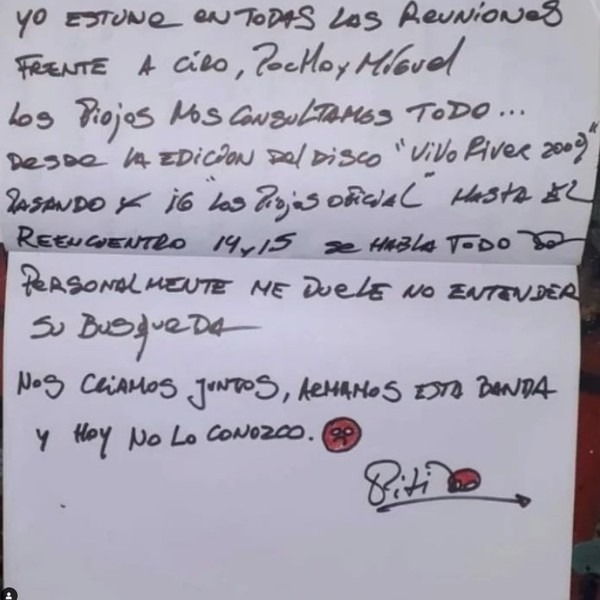 YO ESTUVE EN TODAS LAS REUNIONES
FRENTE A CIRO, Pocho y Miguel
Los Piojos NOS CONSULTAMOS TODO...
DESDE LA EDICION Del DISCO "ViVo River 2009"
PASANDO X iG "Los Piojos OFICIAL" HASTA EL
REENCUENTRO 14 y 15 se HABLA TODO
PERSONALMENTE ME DUELE NO ENTENDER
SU BUSQUEDA
NOS CRIAMOS JUNTOS, ARMAMOS ESTA BANDA
Y HOY NO LO CONOZCO.
Piti